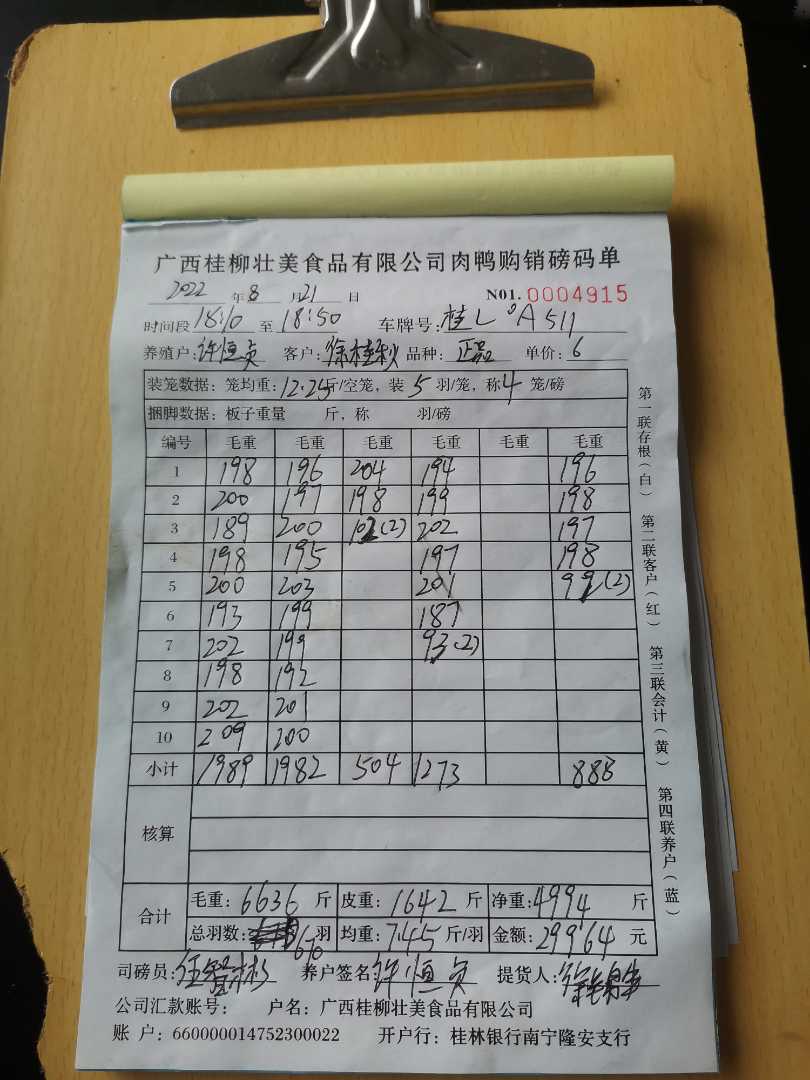 广西桂柳壮美食品有限公司肉鸭购销磅码单
2022 年 8 月 21 日 N01. 0004915
时间段 18:10 至 18:50 车牌号: 桂L A511
养殖户: 许恒贞 客户: 徐桂秋 品种: 正品 单价: 6
装笼数据: 笼均重: 12.25 斤/空笼, 装 5 羽/笼, 称 4 笼/磅
捆脚数据: 板子重量 斤, 称 羽/磅
编号 毛重 毛重 毛重 毛重 毛重 毛重
1 198 196 204 194 196
2 200 197 198 199 198
3 189 200 102(2) 202 197
4 198 195 197 198
5 200 203 201 99(2)
6 193 199 187
7 202 199 93(2)
8 198 192
9 202 201
10 209 200
小计 1989 1982 504 1273 888
核算
合计 毛重: 6636 斤 皮重: 1642 斤 净重: 4994 斤
总羽数: 670 羽 均重: 7.45 斤/羽 金额: 29964 元
司磅员: 养户签名: 许恒贞 提货人:
公司汇款账号: 户名: 广西桂柳壮美食品有限公司
账 户: 660000014752300022 开户行: 桂林银行南宁隆安支行
第一联存根(白) 第二联客户(红) 第三联会计(黄) 第四联养户(蓝)